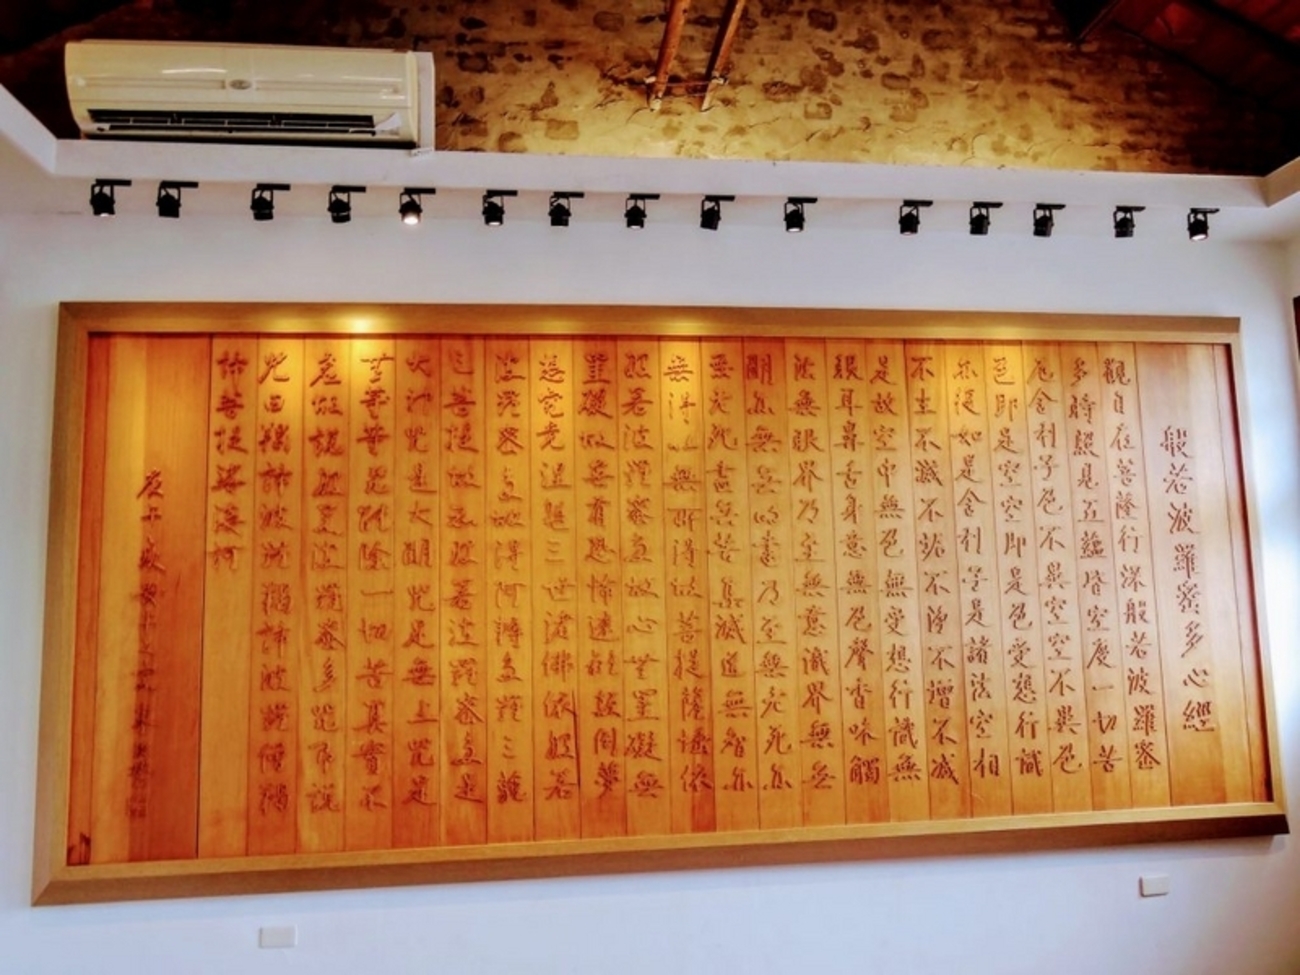 般若波羅蜜多心經
觀自在菩薩行深般若波羅蜜
多時照見五蘊皆空度一切苦
厄舍利子色不異空空不異色
色即是空空即是色受想行識
亦復如是舍利子是諸法空相
不生不滅不垢不淨不增不減
是故空中無色無受想行識無
眼耳鼻舌身意無色聲香味觸
法無眼界乃至無意識界無無
明亦無無明盡乃至無老死亦
無老死盡無苦集滅道無智亦
無得以無所得故菩提薩埵依
般若波羅蜜多故心無罣礙無
罣礙故無有恐怖遠離顛倒夢
想究竟涅槃三世諸佛依般若
波羅蜜多故得阿耨多羅三藐
三菩提故知般若波羅蜜多是
大神咒是大明咒是無上咒是
無等等咒能除一切苦真實不
虛故說般若波羅蜜多咒即說
咒曰揭諦波羅揭諦波羅僧揭
諦菩提娑婆訶